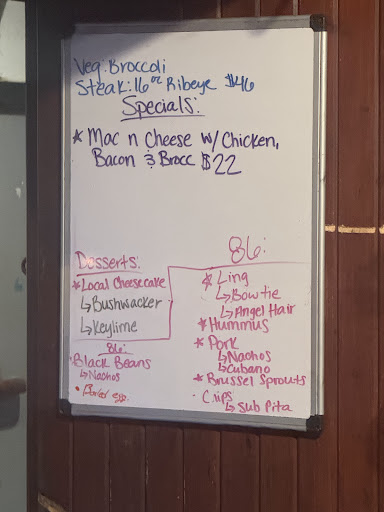 Veg: Broccoli
Steak: 16 oz Ribeye $46
Specials:
* Mac n Cheese w/ Chicken,
Bacon & Brocc $22
Desserts:
* Local Cheesecake
↳ Bushwacker
↳ Keylime
86:
· Black Beans
↳ Nachos
86:
* Ling
↳ Bowtie
↳ Angel Hair
* Hummus
* Pork
↳ Nachos
↳ Cubano
* Brussel Sprouts
· C ips
↳ Sub Pita